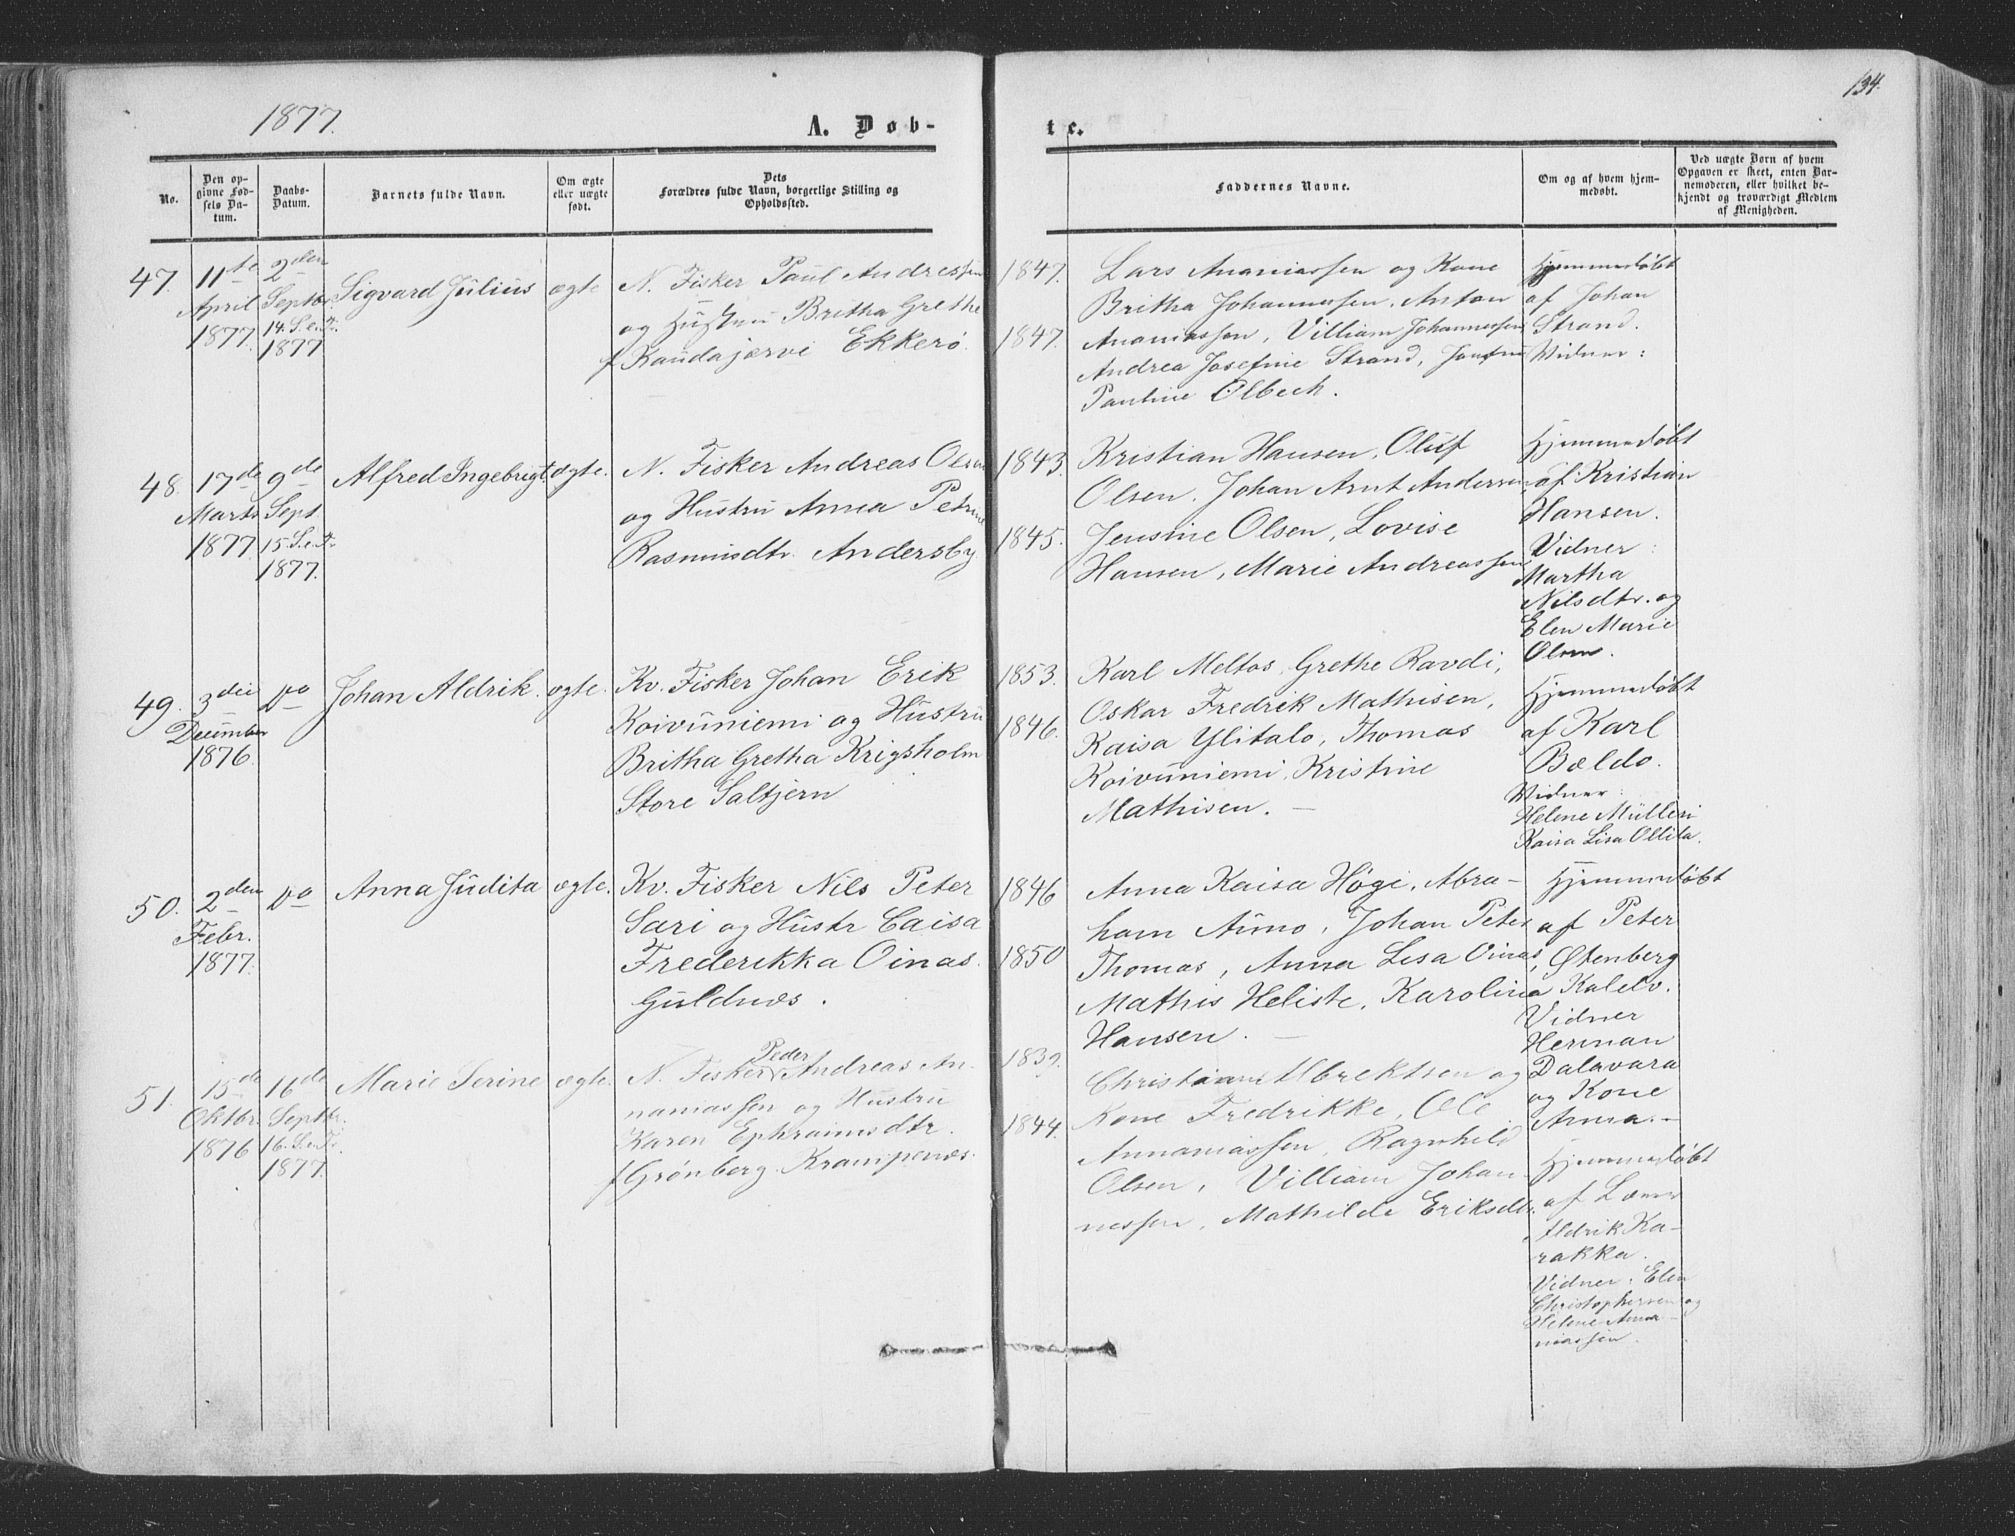 1877.
A. Døb-
te.
134.
No.
Den op-
givne Fød-
sels Da-
tum.
Daabs-
Datum.
Barnets fulde Navn.
Om ægte
eller uægte
født.
Dets
Forældres fulde Navn, borgerlige Stilling og
Opholdssted.
Faddernes Navne.
Om og af hvem hjem-
medøbt.
Ved uægte Børn af hvem
Opgaven er skeet, enten Bar-
nemoderen, eller hvilket be-
kjendt og troværdigt Medlem
af Menigheden.
47.
11te
April
1877.
2den
Septbr
14. S.e.Tr.
1877
Sigvard Julius
ægte
N. Fisker Paul Andressen
og Hustru Britha Grethe
f Kandajærvi Ekkerø.
1847.
1847.
Lars Ananiassen og Kone
Britha Johannessen, Anton
Ananiassen, Villiam Johannessen
Andrea Josefine Strand,
Pauline Olbech.
Hjemmedøbt
af Johan
Strand.
Vidner:
48.
17de
Marts
1877
9de
Sept.
15. S.e.Tr.
1877.
Alfred Ingebrigt.
ægte.
N. Fisker Andreas Olsen
og Hustru Anna Petrine
Rasmusdtr. Andersby.
1843.
1845.
Kristian Hansen, Oluf
Olsen, Johan Arnt Andersen
Jensine Olsen, Lovise
Hansen, Marie Andreassen
Hjemmedøbt
af Kristian
Hansen.
Vidner:
Martha
Nilsdtr. og
Elen Marie
Olsen.
49.
3die
December
1876.
do
Johan Aldrik.
ægte.
Kv. Fisker Johan Erik
Koivuniemi og Hustru
Britha Gretha Krigsholm
Store Saltjern
1853.
1846.
Karl Meltos, Grethe Ravdi,
Oskar Fredrik Mathisen,
Kaisa Ylitalo, Thomas
Koivuniemi, Kristine
Mathisen. —
Hjemmedøbt
af Karl
Bældo.
Vidner:
Helene Mülleri
Kaisa Lisa Ollila.
50.
2den
Febr.
1877.
do
Anna Judita
ægte.
Kv. Fisker Nils Peter
Sari og Hustr Caisa
Frederikka Oinas.
Guldnæs.
1846
1850
Anna Kaisa Høgi, Abra-
ham Aimo, Johan Peter
Thomas, Anna Lisa Oinas,
Mathis Heliste, Karolina
Hansen. —
Hjemmedøbt
af Peter
Østenberg
Kalelv.
Vidner
Herman
Dalavara
og Kone
Anna. —
51.
15de
Oktbr.
1876
16de
Septbr.
16. S.e.Tr.
1877.
Marie Serine
ægte.
N. Fisker Peder Andreas An-
naniassen og Hustru
Karen Ephraimsdtr.
f Grønberg. Krampenæs.
1839.
1844.
Christian Albrektsen og
Kone Fredrikke, Ole
Annaniassen, Ragnhild
Olsen, Villiam Johan-
nessen, Mathilde Eriksdtr.
Hjemmedøbt
af Læser
Aldrik Ka-
rakka.
Vidner: Elen
Christophersen og
Helene Anna-
niassen.